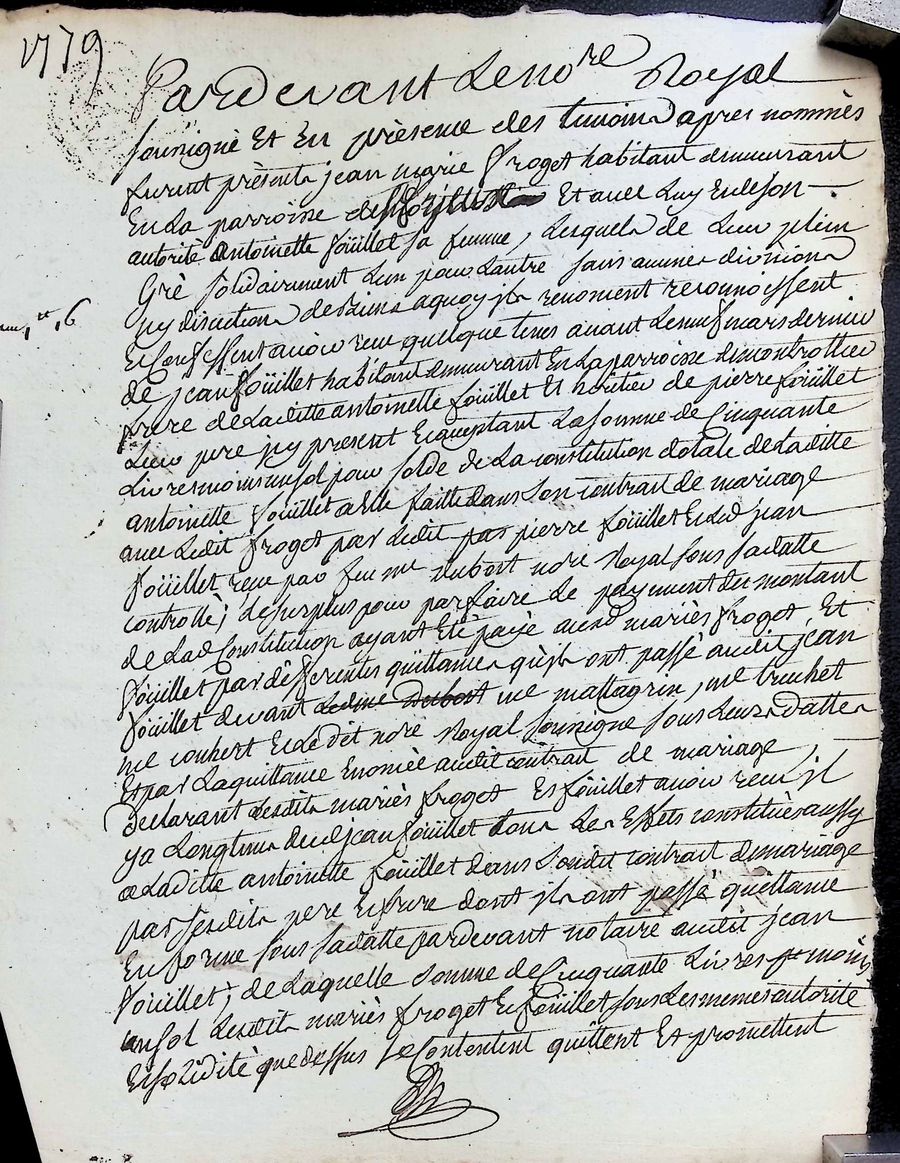 1779
Pardevant Le no.re Royal
sousigné Et En présence des temoins apres nommés
furent présents jean marie froget habitant demeurant
En La parroisse de Et avec Luy En Leson
autorité antoinette foüillet sa femme, Lesquels de Leur plein
Gré solidairement Lun pour Lautre sans aucunes divisions
ny discution de biens aquoy ils renoncent reconnoissent
Et Confessent avoir recu quelque tems avant Le neuf mars dernier
de jean foüillet habitant demeurant En La parroisse de montrottier
frere de Laditte antoinette foüillet Et heritier de pierre foüillet
Leur pere icy present Et aceptant La somme de Cinquante
Livres moins un sol pour solde de La constitution dotale de Laditte
antoinette foüillet a Elle faitte dans Son contrat de mariage
avec Ledit froget par Ledit pierre foüillet Et Led jean
foüillet recu par feu me dubost no.re Royal sous sa datte
controllé; Le surplus pour parfaire Le payement du montant
de Lad Constitution ayant Eté payé auxd mariés froget Et
foüillet par differentes quittances qu'ils ont passé audit jean
foüillet devant Ledit me Dubost me mallagrin, me truchet
me conhert Et Le dit no.re Royal sousigné sous Leurs dattes
Et par La quittance Enoncée audit contrait de mariage,
declarant Lesdits mariés froget Et foüillet avoir recu il
ya Longtems dud jean foüillet tous Les Effets constitués aussy
a Laditte antoinette foüillet dans Sondit contrait de mariage
par sesdits pere Et frere dont ils ont passé quittance
En forme sous sa datte pardevant notaire audit jean
foüillet; de Laquelle somme de Cinquante Livres moins
un sol Lesdits mariés froget Et foüillet sous Les memes autorité
Et solidité que dessus se Contentent quittent Et promettent